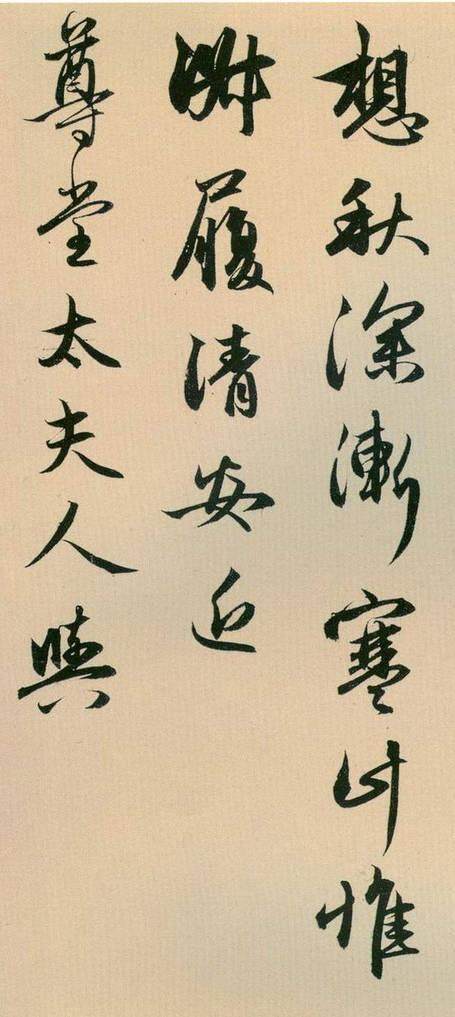 想秋深漸寒計惟
淋履清安近
尊堂太夫人與